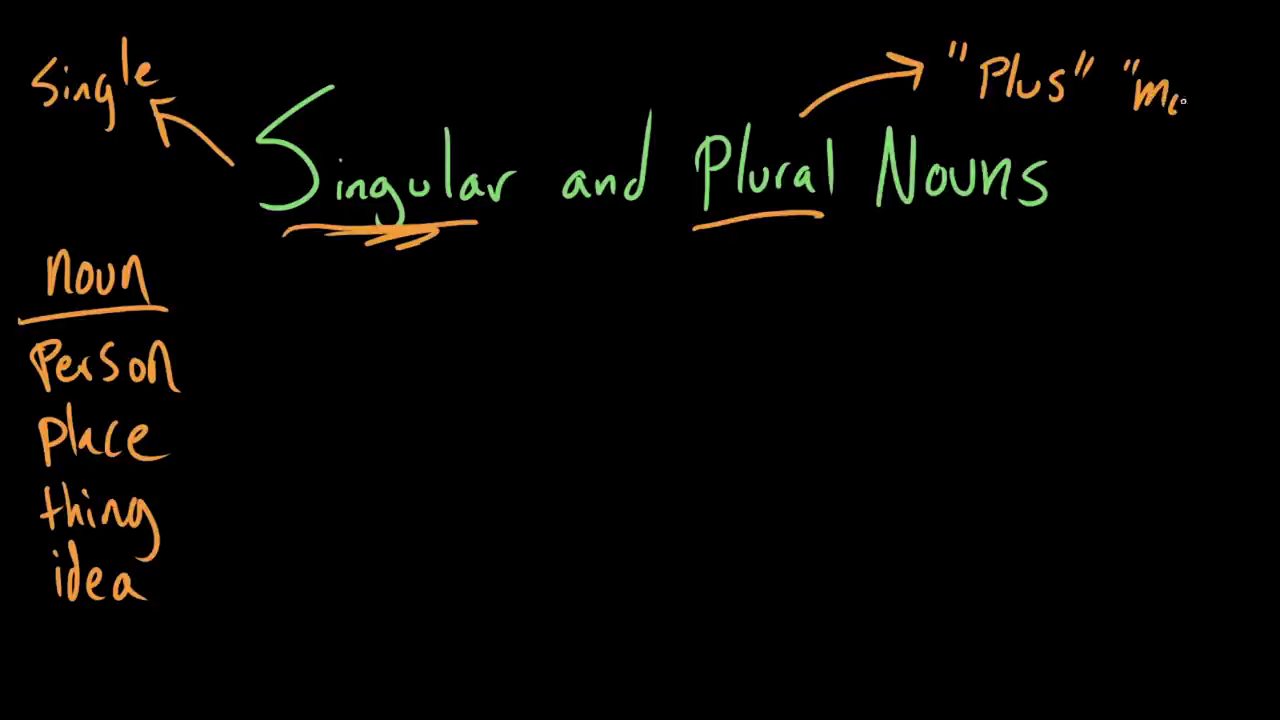 Single
"Plus"
Singular and Plural Nouns
noun
person
place
thing
idea